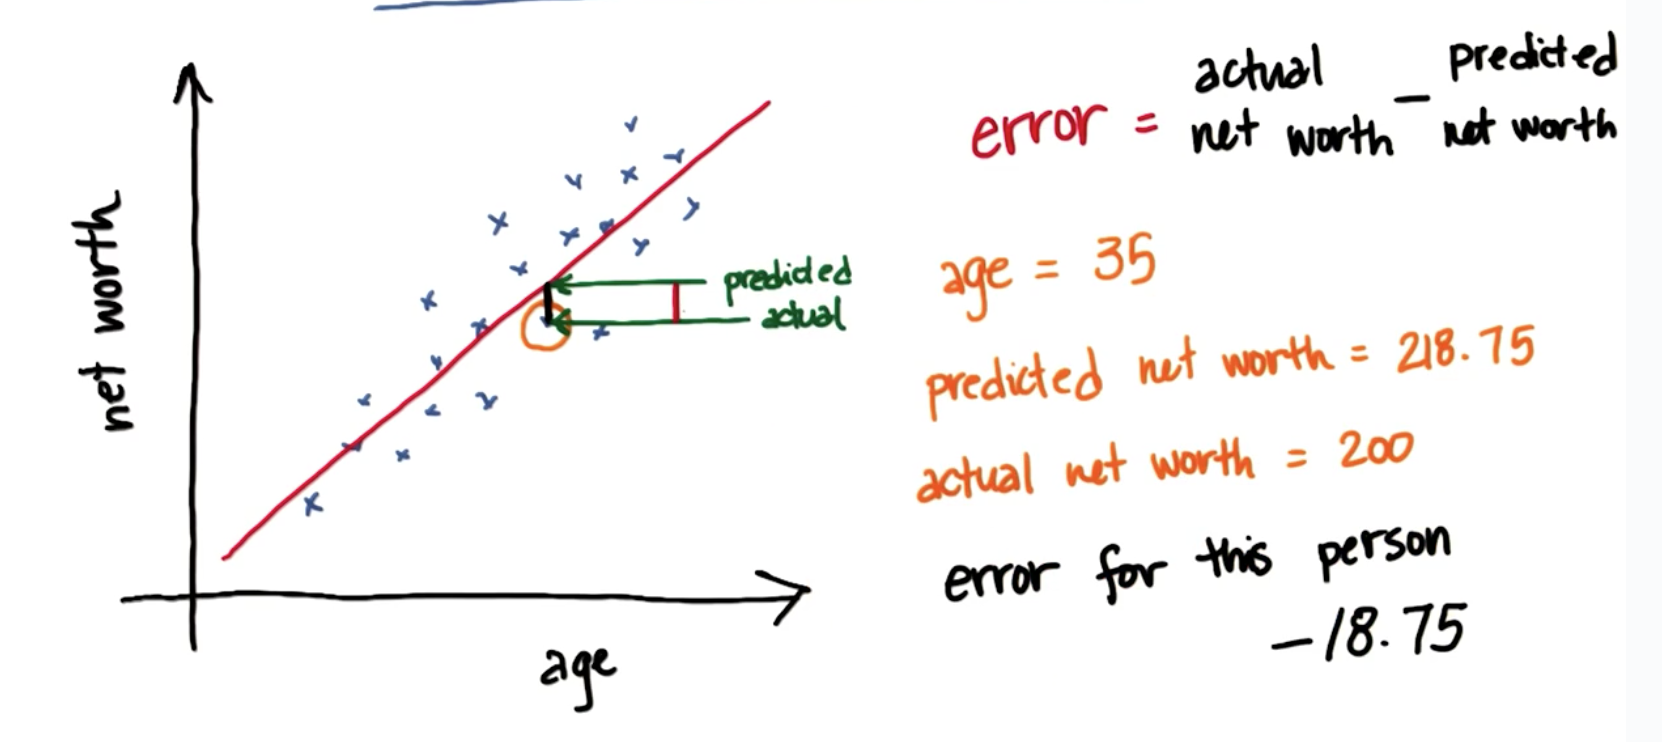 net worth
age
predicted
actual
error = actual net worth - predicted net worth
age = 35
predicted net worth = 218.75
actual net worth = 200
error for this person
-18.75